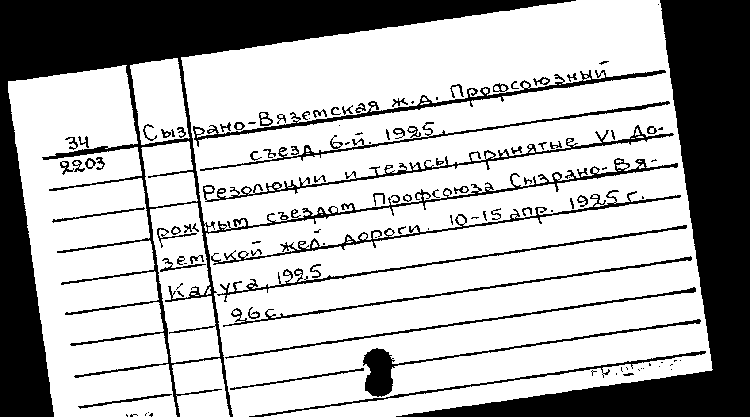 34
2203
Сызрано-Вяземская ж.д. Профсоюзный
съезд, 6-й. 1925.
Резолюции и тезисы, принятые VI До-
рожным съездом Профсоюза Сызрано-Вя-
земской жел. дороги. 10-15 апр. 1925 г.
Калуга, 1925.
26 с.